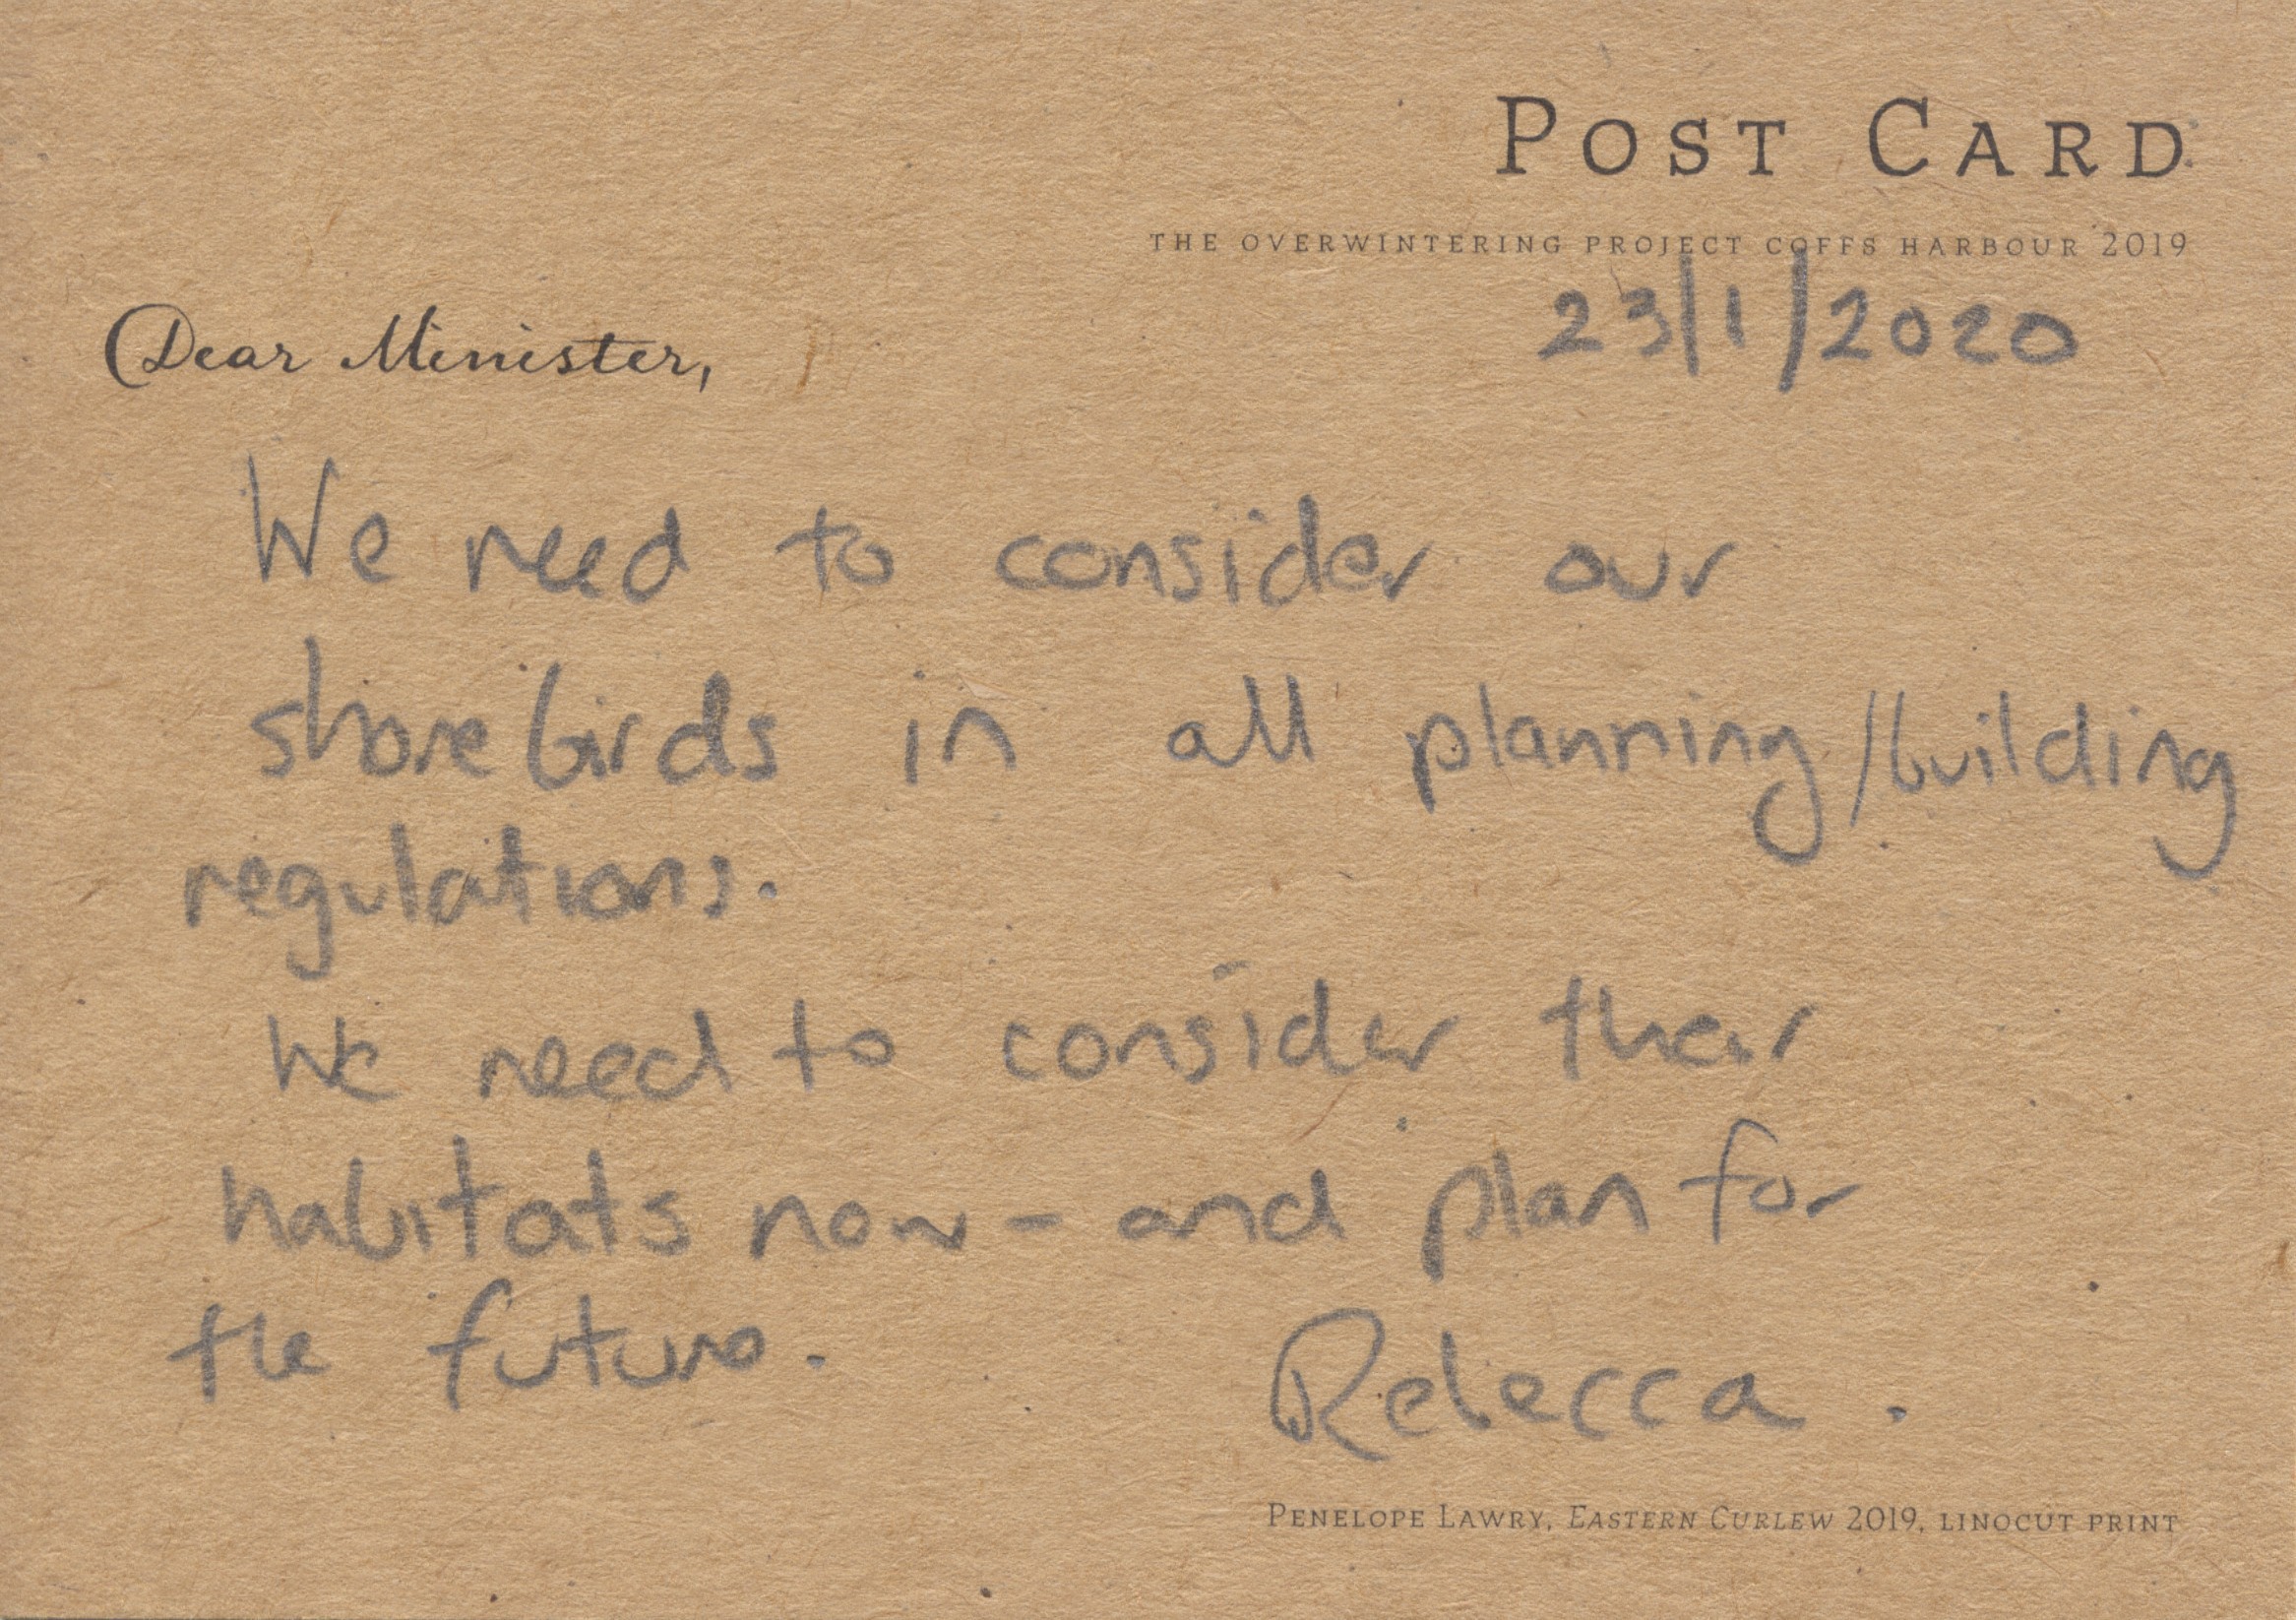 POST CARD
THE OVERWINTERING PROJECT COFFS HARBOUR 2019
23/1/2020
Dear Minister,
We need to consider our
shorebirds in all planning/building
regulations.
We need to consider their
habitats now - and plan for
the future.
Rebecca.
PENELOPE LAWRY, EASTERN CURLEW 2019, LINOCUT PRINT